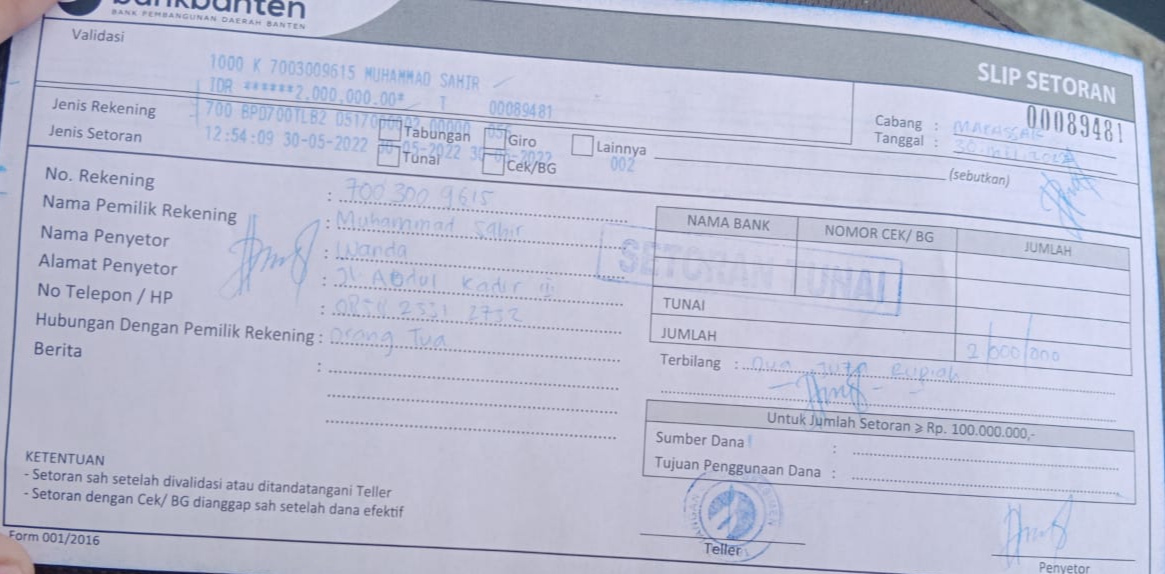 bankbanten
BANK PEMBANGUNAN DAERAH BANTEN
SLIP SETORAN
00089481
Validasi
1000 K 7003009615 MUHAMMAD SAHIR
IDR ******2,000,000.00* T 00089481
700 BPD700TLB2
12:54:09 30-05-2022 30-05-2022 30-05-2022 002
Cabang : MAKASSAR
Tanggal :
Jenis Rekening Tabungan Giro Lainnya
(sebutkan)
Jenis Setoran Tunai Cek/BG
No. Rekening : 700 300 9615
Nama Pemilik Rekening : Muhammad Sahir
Nama Penyetor : Wanda
Alamat Penyetor : Jl. Abdul Kadir
No Telepon / HP :
Hubungan Dengan Pemilik Rekening : Orang Tua
Berita :
NAMA BANK NOMOR CEK/ BG JUMLAH
SETORAN TUNAI
TUNAI
JUMLAH 2.000.000
Terbilang : Dua Juta Rupiah
Untuk Jumlah Setoran ⩾ Rp. 100.000.000,-
Sumber Dana :
Tujuan Penggunaan Dana :
KETENTUAN
- Setoran sah setelah divalidasi atau ditandatangani Teller
- Setoran dengan Cek/ BG dianggap sah setelah dana efektif
Teller
Penyetor
Form 001/2016